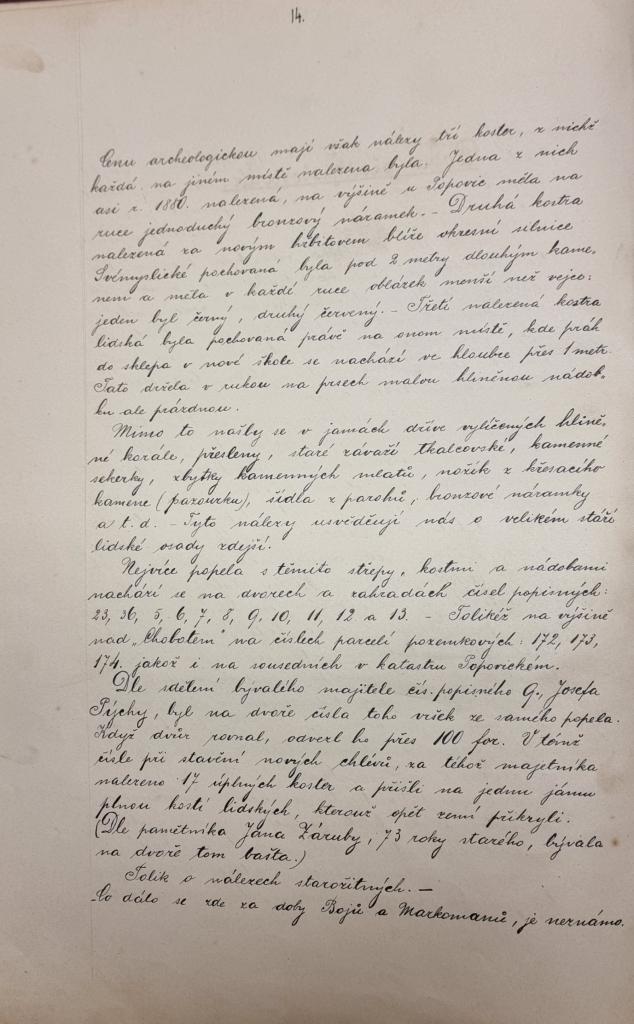 14.
Cenu archeologickou mají však nálezy tří koster, z nichž
každá na jiném místě nalezena byla. Jedna z nich
asi r. 1880. nalezená, na výšině u Popovic měla na
ruce jednoduchý bronzový náramek. - Druhá kostra
nalezená za novým hřbitovem blíže okresní silnice
Svémyslické pochovaná byla pod 2 metry dlouhým kame-
nem a měla v každé ruce oblázek menší než vejce:
jeden byl černý, druhý červený. - Třetí nalezená kostra
lidská byla pochovaná právě na onom místě, kde práh
do sklepa v nové škole se nachází ve hloubce přes 1 metr.
Tato držela v rukou na prsech malou hliněnou nádob-
ku ale prázdnou.
Mimo to našly se v jamách dříve vylíčených hlině-
né korále, přesleny, staré závaží tkalcovské, kamenné
sekerky, zbytky kamenných mlatů, nožík z křesacího
kamene (pazourku), šídla z parohů, bronzové náramky
a t. d. - Tyto nálezy usvědčují nás o velikém stáří
lidské osady zdejší.
Nejvíce popela s těmito střepy, kostmi a nádobami
nachází se na dvorech a zahradách čísel popisných:
23, 36, 5, 6, 7, 8, 9, 10, 11, 12 a 13. - Tolikéž na výšině
nad „Chobotem" na číslech parcelí pozemkových: 172, 173,
174. jakož i na sousedních v katastru Popovickém.
Dle sdělení bývalého majitele čís. popisného 9., Josefa
Pýchy, byl na dvoře čísla toho vršek ze samého popela.
Když dvůr rovnal, odvezl ho přes 100 for. V témž
čísle při stavění nových chlévů, za téhož majetníka
nalezeno 17 úplných koster a přišli na jednu jámu
plnou kostí lidských, kterouž opět zemí přikryli.
(Dle pamětníka Jana Záruby, 73 roky starého, bývala
na dvoře tom bašta.)
Tolik o nálezech starožitných. -
Co dálo se zde za doby Bojů a Markomanů, je neznámo.